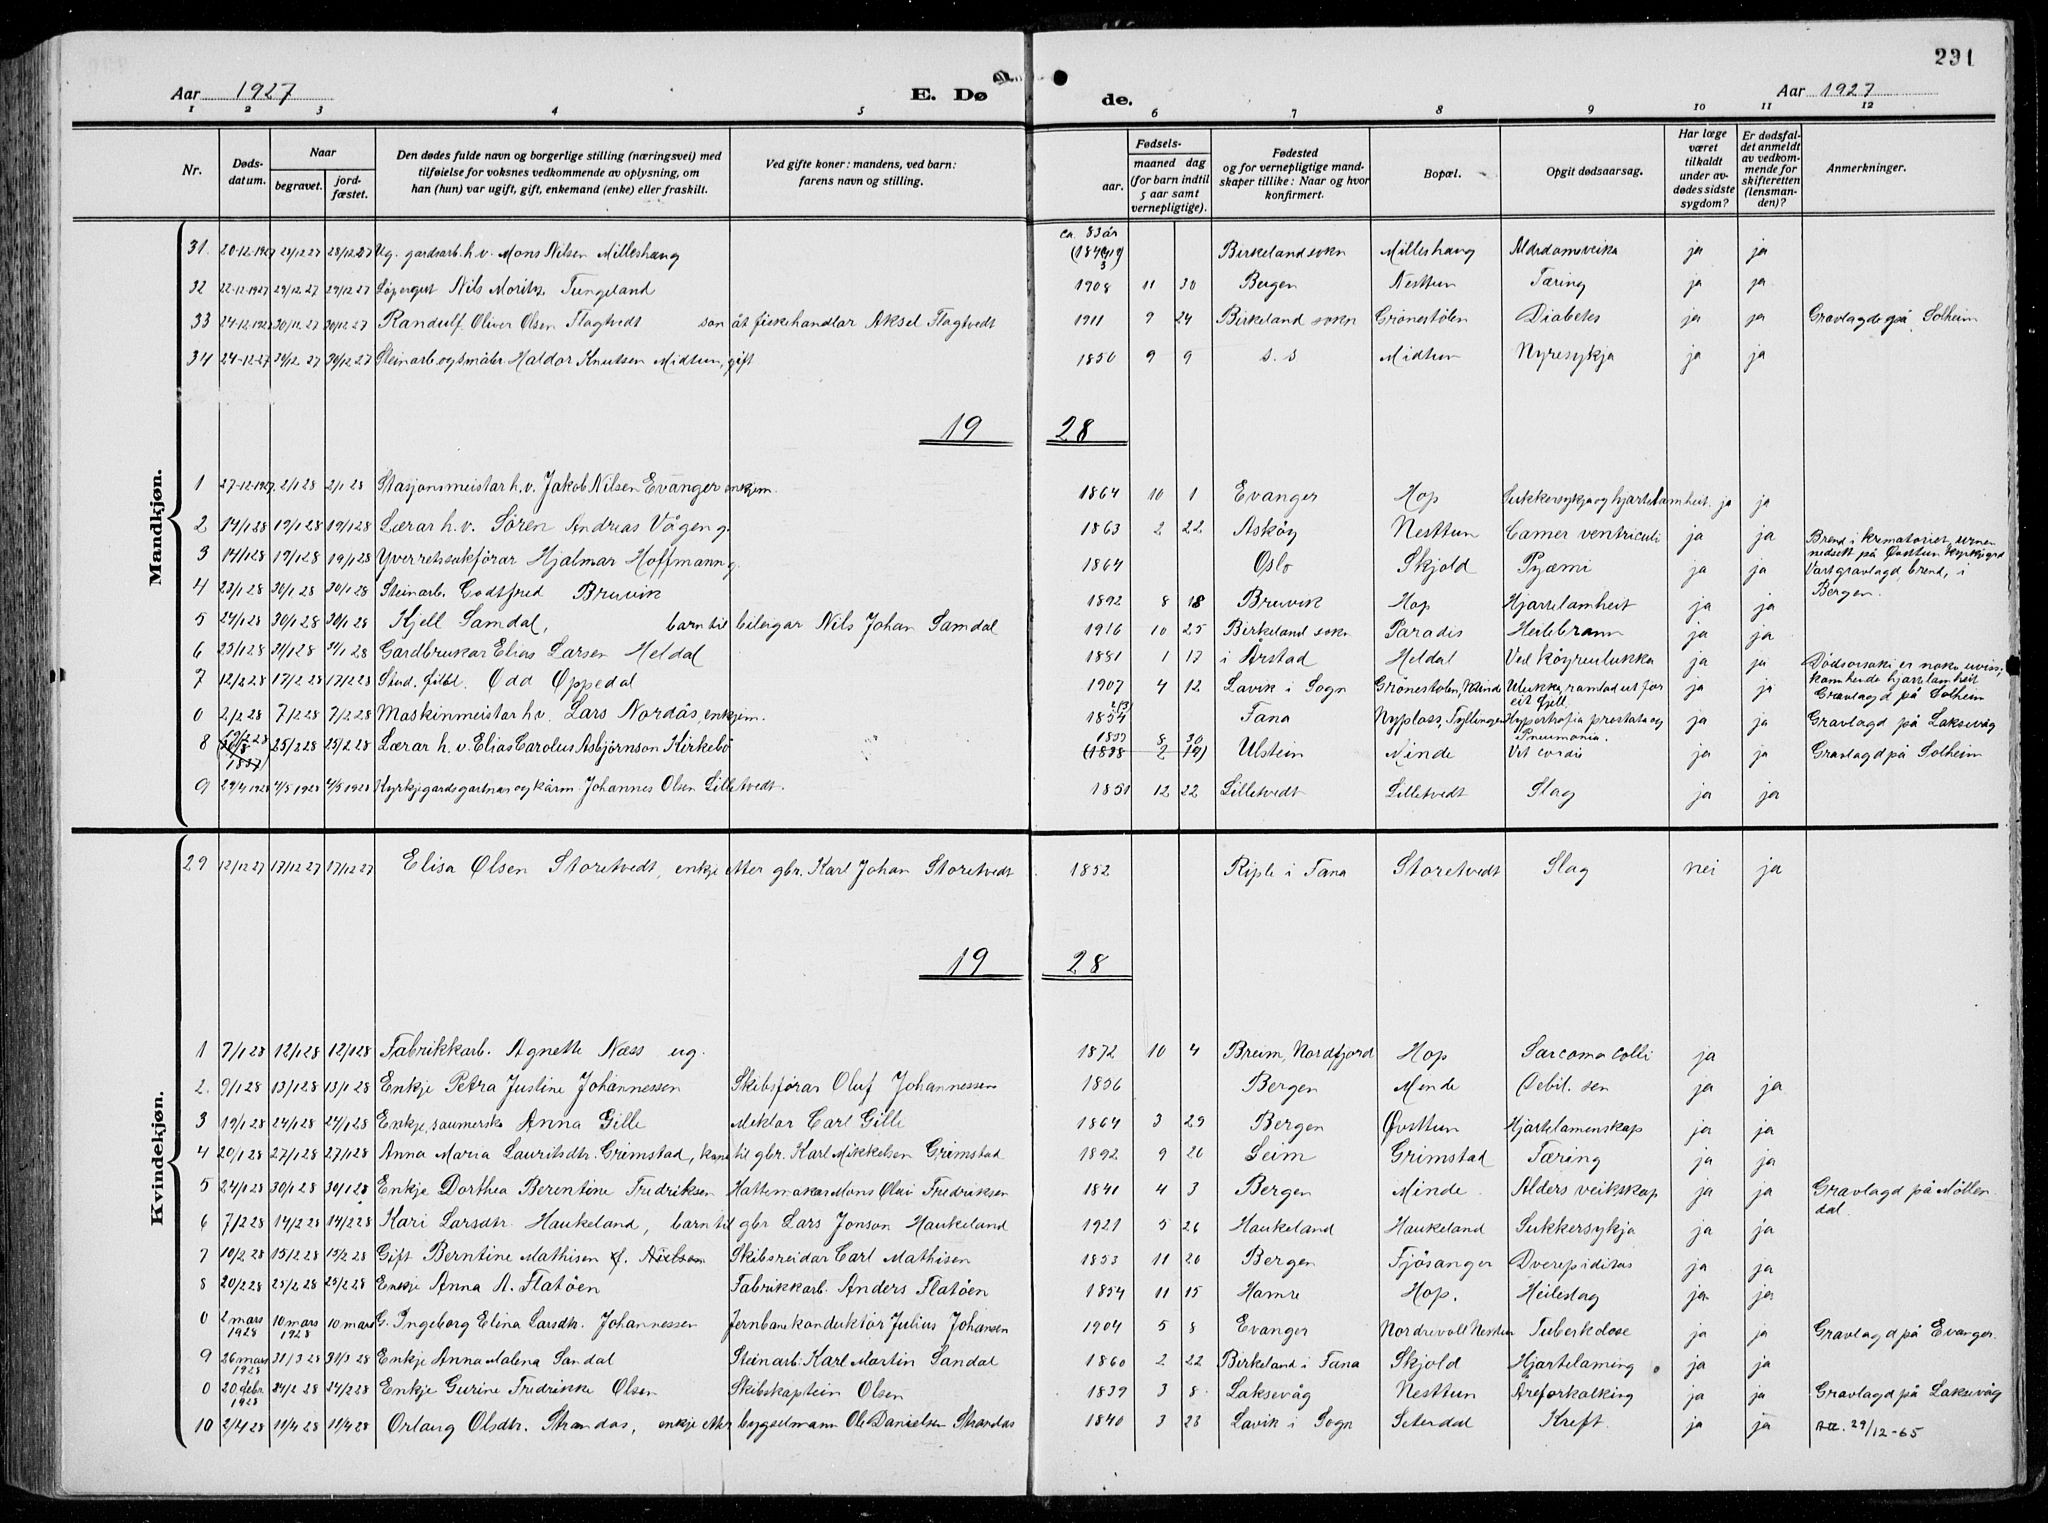 231
Aar 1927 E. Dø de. Aar 1927
1 2 3 4 5 6 7 8 9 10 11 12
Nr. Døds-datum. Naar begravet. jord-fæstet. Den dødes fulde navn og borgerlige stilling (næringsvei) med tilføielse for voksnes vedkommende av oplysning, om han (hun) var ugift, gift, enkemand (enke) eller fraskilt. Ved gifte koner: mandens, ved barn: farens navn og stilling. Fødsels- aar. maaned dag (for barn indtil 5 aar samt vernepligtige). Fødested og for vernepligtige mandskaper tillike: Naar og hvor konfirmert. Bopæl. Opgit dødsaarsag. Har læge været tilkaldt under avdødes sidste sygdom? Er dødsfaldet anmeldt av vedkommende for skifteretten (lensmanden)? Anmerkninger.
Mandkjøn.
31 20-12-1927 28/12 27 28/12 27 Ug. gardsarb. h.v. Mons Nilsen Milleshaug ca. 83 år Birkeland sokn Milleshaug Alderdomsveika ja ja
32 22-12-1927 29/12 27 29/12 27 Løpergut Nils Moritz Tungeland 1908 11 30 Bergen Nesttun Tæring ja ja
33 24-12-1927 30/12 27 30/12 27 Randulf Oliver Olsen Flagtvedt son åt fiskehandlar Aksel Flagtvedt 1911 9 24 Birkeland sokn Grønestølen Diabetes ja ja Gravlagde på Solheim
34 24-12-27 29/12 27 30/12 27 Steinarb. og småbr. Haldor Knutsen Midtun, gift 1850 9 9 s. s Midtun Nyresykja ja ja
19 28
1 27-12-1927 2/1 28 2/1 28 Stasjonsmeistar h.v. Jakob Nilsen Evanger enkjem. 1864 10 1 Evanger Hop Sukkersykja og hjartelamheit. ja ja
2 14/1 28 19/1 28 19/1 28 Lærar h.v. Søren Andreas Vågen g. 1863 2 22 Askøy Nesttun Camer ventriculi ja ja Brend i krematoriet, urnen nedsett på Øvsttun kyrkjegrd
3 14/1 28 19/1 28 19/1 28 Yverretssakførar Hjalmar Hoffmann g. 1864 Oslo Skjold Pyæmi ja ja Vart gravlagd, brend, i Bergen.
4 23/1 28 30/1 28 30/1 28 Steinarb. Godtfred Bruvik 1892 8 18 Bruvik Hop Hjartelamheit ja ja
5 24/1 28 30/1 28 30/1 28 Kjell Samdal, barn til bileigar Nils Johan Samdal 1916 10 25 Birkeland sokn Paradis Heilebrann ja ja
6 25/1 28 31/1 28 31/1 28 Gardbrukar Elias Larsen Heldal 1881 1 17 i Årstad Heldal Ved køyreulukka ja ja Dødsorsaki er noko uviss, kanhende hjartelamheit
7 12/2 28 17/2 28 17/2 28 Stud. filol. Odd Oppedal 1907 4 12 Lavik i Sogn Grønestølen, Minde Ulukka, ramlad ut for eit fjell ja ja Gravlagd på Solheim
0 2/2 28 7/2 28 7/2 28 Maskinmeistar h.v. Lars Nordås, enkjem. 1854 Fana Nyplass, Fyllingen Hyperthofia prostata og Pneumonia. ja ja Gravlagd på Laksevåg
8 19/2 28 25/2 28 25/2 28 Lærar h.v. Elias Carolus Asbjørnson Kirkebø 1837 8 30 (1838 2 19) Ulstein Minde Vit cordis ja ja Gravlagd på Solheim
9 29/4 1928 4/5 1928 4/5 1928 Kyrkjegardsgartnar og kårm. Johannes Olsen Lilletvedt. 1851 12 22 Lilletvedt Lilletvedt Slag ja ja
Kvindekjøn.
29 12/12 27 17/12 27 17/12 27 Elisa Olsen Storetvedt, enkje etter gbr. Karl Johan Storetvedt 1852 Riple i Fana Storetvedt Slag nei ja
19 28
1 7/1 28 12/1 28 12/1 28 Fabrikkarb. Agnette Næss ug. 1872 10 4 Breim, Nordfjord Hop Sarcoma colli ja
2. 9/1 28 13/1 28 13/1 28 Enkje Petra Justine Johannessen Skibsførar Oluf Johannessen 1856 Bergen Minde Debil. sen ja ja
3 19/1 28 24/1 28 24/1 28 Enkje, saumerske Anna Gille Meklar Carl Gille 1864 3 29 Bergen Øvsttun Hjartelamenskap ja ja
4 20/1 28 27/1 28 27/1 28 Anna Maria Lauritsdtr. Grimstad, kone til gbr. Karl Mikkelsen Grimstad 1892 9 20 Seim Grimstad Tæring ja ja
5 24/1 28 30/1 28 30/1 28 Enkje Dorthea Berentine Fredriksen Hattemakar Mons Olai Fredriksen 1841 4 3 Bergen Minde. Alders veikskap ja ja Gravlagd på Møllendal.
6 7/2 28 14/2 28 14/2 28 Kari Larsdtr Haukeland, barn til gbr Lars Jonson Haukeland 1921 5 26 Haukeland Haukeland Sukkersykja ja ja
7 10/2 28 15/2 28 15/2 28 Gift Berntine Mathisen f. Nielsen Skibsreidar Carl Mathisen 1853 11 20 Bergen Fjøsanger ja ja
8 20/2 28 25/2 28 25/2 28 Enkje Anna A. Flatøen Fabrikkarb. Anders Flatøen 1854 11 15 Hamre Hop. Heileslag ja ja
0 2 mars 1928 10 mars 1928 10 mars G. Ingeborg Elina Larsdtr. Johannessen Jernbanekonduktør Julius Johansen 1904 5 8 Evanger Nordrevoll Nesttun Tuberkolose ja ja Gravlagd på Evanger.
9 26 mars 1928 31/3 28 31/3 28 Enkje Anna Malena Sandal Steinarb. Karl Martin Sandal 1860 2 22 Birkeland i Fana Skjold Hjartelaming ja ja
0 20 febr. 1928 24/2 28 24/2 28 Enkje Gurine Fredrikke Olsen Skibskaptein Olsen 1839 3 8 Laksevåg Nesttun Areforkalking ja ja Gravlagd på Laksevåg
10 2/4 28 11/4 28 11/4 28 Orlaug Olsdtr. Strandos, enkje etter bygselmann Ole Danielsen Strandos 1840 3 23 Lavik i Sogn Seterdal Kreft. ja ja 29/12-65